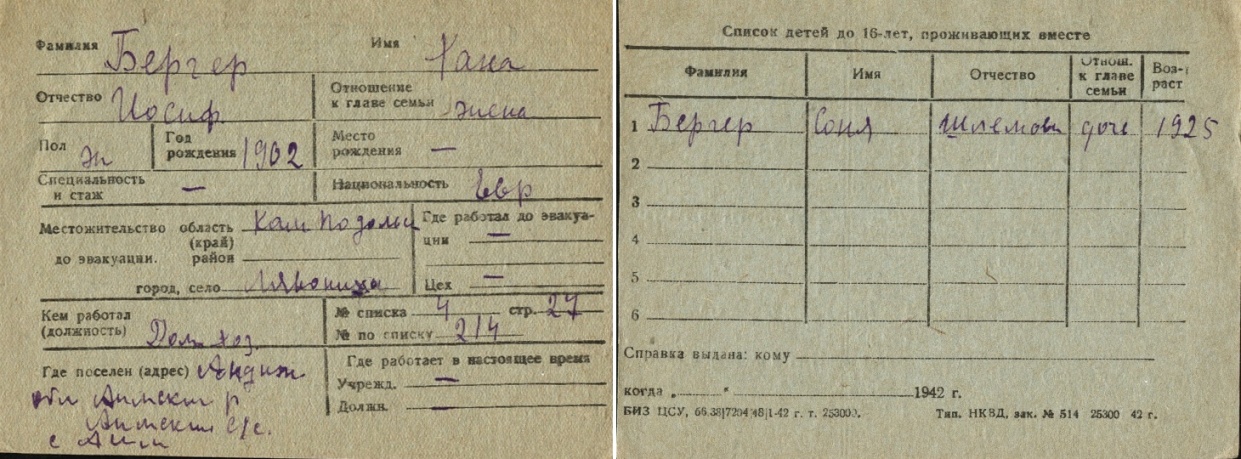 Фамилия Бергер Имя Хана
Отчество Иосиф. Отношение к главе семьи жена
Пол ж Год рождения 1902 Место рождения —
Специальность и стаж — Национальность евр
Местожительство область (край) Кам Подольск Где работал до эвакуа-
до эвакуации. район ции —
город, село Цех —
Кем работал (должность) Дом хоз. № списка 4 стр. 27
№ по списку 214
Где поселен (адрес) Андиж Где работает в настоящее время
обл р Учрежд. —
с/с. Должн. —
с
Список детей до 16-лет, проживающих вместе
Фамилия Имя Отчество Отнош. к главе семьи Воз-раст
1 Бергер Соня Шлемовн доч 1925
2
3
4
5
6
Справка выдана: кому
когда „ " 1942 г.
БИЗ ЦСУ, 1-42 г. т. 25300. Тип. НКВД, зак. № 514 25300 42 г.